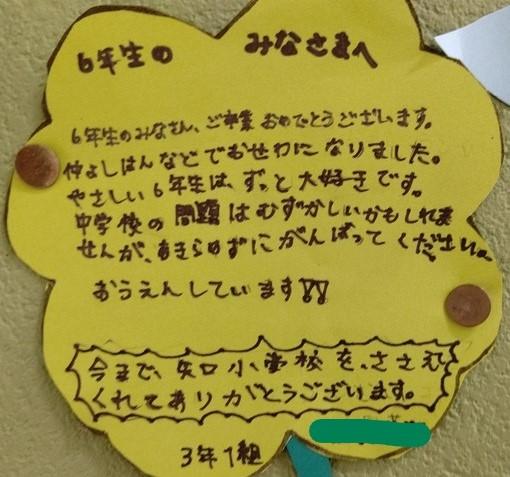 6年生の みなさまへ
6年生のみなさん、ご卒業おめでとうございます。
仲よしはんなどでおせわになりました。
やさしい6年生は、ずっと大好きです。
中学校の問題はむずかしいかもしれま
せんが、あきらめずにがんばってください。
おうえんしています!!
今まで、矢口小学校を、ささえて
くれてありがとうございます。
3年1組